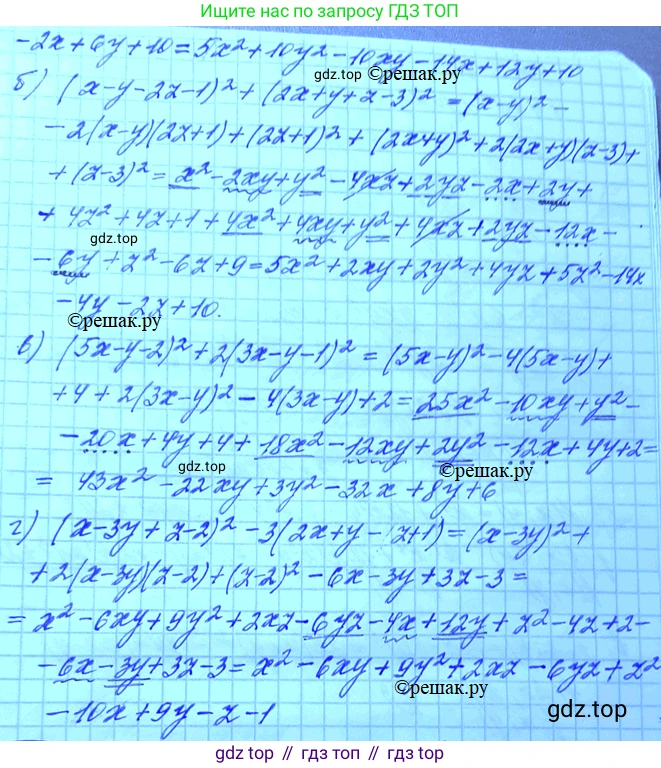 Ищите нас по запросу ГДЗ ТОП
-2x+6y+10=5x²+10y²-10xy-14x+12y+10
gdz.top ©reшак.ру
б) (x-y-2z-1)²+(2x+y+z-3)²=(x-y)²-
-2(x-y)(2z+1)+(2z+1)²+(2x+y)²+2(2x+y)(z-3)+
+(z-3)²=x²-2xy+y²-4xz+2yz-2x+2y+
+4z²+4z+1+4x²+4xy+y²+4xz+2yz-12x-
gdz.top
-6y+z²-6z+9=5x²+2xy+2y²+4yz+5z²-14x
-4y-2z+10.
©reшак.ру
в) (5x-y-2)²+2(3x-y-1)²=(5x-y)²-4(5x-y)+
+4+2(3x-y)²-4(3x-y)+2=25x²-10xy+y²-
-20x+4y+4+18x²-12xy+2y²-12x+4y+2=
gdz.top ©reшак.ру
=43x²-22xy+3y²-32x+8y+6
г) (x-3y+z-2)²-3(2x+y-z+1)=(x-3y)²+
+2(x-3y)(z-2)+(z-2)²-6x-3y+3z-3=
=x²-6xy+9y²+2xz-6yz-4x+12y+z²-4z+2-
-6x-3y+3z-3=x²-6xy+9y²+2xz-6yz+z²
©reшак.ру
-10x+9y-z-1
gdz.top
gdz.top // gdz.top // gdz.top